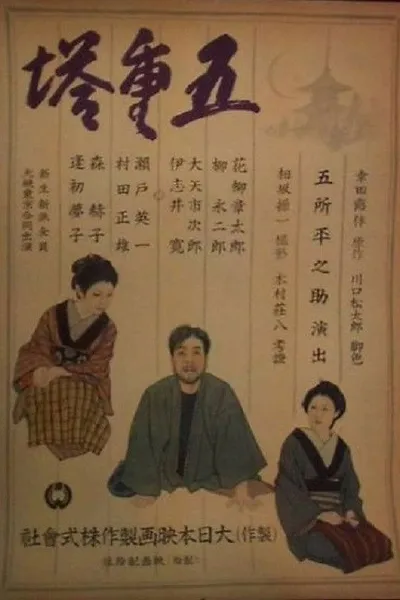 五重塔
幸田露伴 原作 川口松太郎 脚色
五所平之助 演出
相坂操一 撮影 木村荘八 考證
花柳章太郎
柳永二郎
大矢市次郎
伊志井寛
瀬戸英一
村田正雄
森赫子
逢初夢子
新生新派全員
大映東京合同出演
(製作) 大日本映画製作株式會社